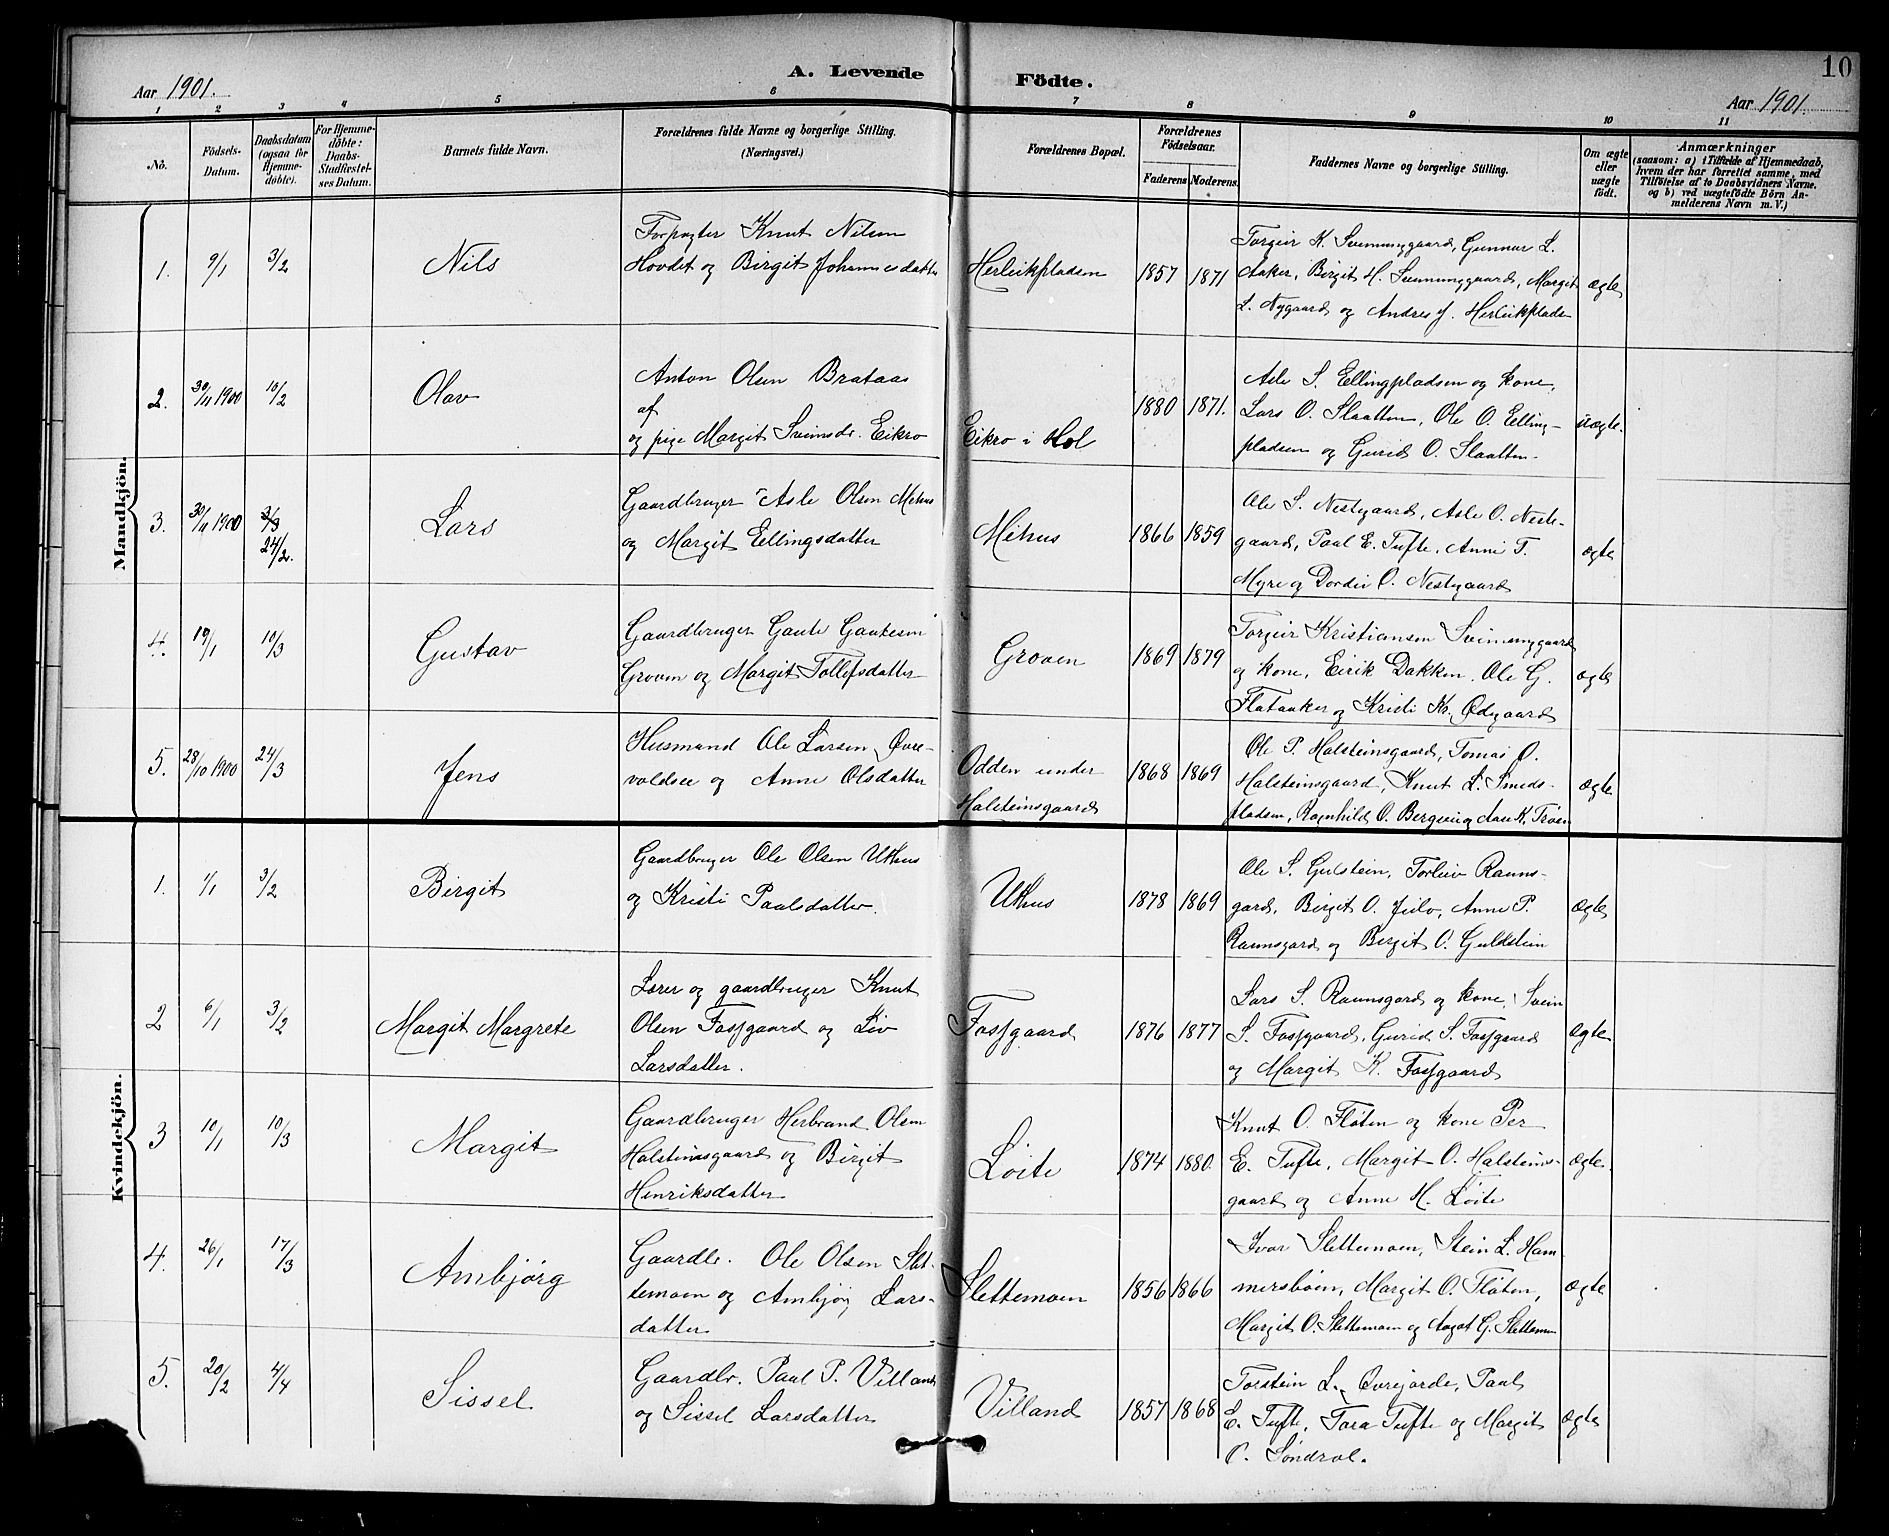 10
A. Levende Födte.
Aar 1901.
Aar 1901.
1 2 3 4 5 6 7 8 9 10 11
No.
Födsels-Datum.
Daabsdatum (ogsaa for Hjemmedöbte).
For Hjemmedöbte: Daabs-Stadfæstelses Datum.
Barnets fulde Navn.
Forældrenes fulde Navne og borgerlige Stilling. (Næringsvei.)
Forældrenes Bopæl.
Forældrenes Födselsaar.
Faderens Moderens.
Faddernes Navne og borgerlige Stilling.
Om ægte eller uægte födt.
Anmærkninger
(saasom: a) i Tilfælde af Hjemmedaab, hvem der har forrettet samme, med Tilföielse af to Daabsvidners Navne. og b) ved uægtefödte Börn Anmelderens Navn m. V.)
Mandkjön.
1. 9/1 3/2 Nils
Forpagter Knut Nilsen
Hovdet og Birgit Johannesdatter
Herleikpladsen 1857 1871
Torgeir K. Svenunggaard, Gunnar L.
Aaker, Birgit H. Svenunggaard, Margit
L. Nygaard og Andres J. Herleikplads
ægte
2. 30/11 1900 10/2 Olav
Anton Olsen Brataas
af
og pige Margit Sveinsdr. Eikro
Eikro i Hol 1880 1871.
Asle S. Ellingpladsen og kone,
Lars O. Slaatten, Ole O. Elling-
pladsen og Gurid O. Slaatten.
uægte.
3. 30/11 1900 3/3 24/2. Lars
Gaardbruger Asle Olsen Mehus
og Margit Ellingsdatter
Mehus 1866 1859
Ole S. Nestegaard, Asle O. Neste-
gaard, Paal E. Tufte, Anne T.
Myre og Dordei O. Nestegaard
ægte
4. 19/1 10/3 Gustav
Gaardbruger Gaute Gautesen
Groven og Margit Tollefsdatter
Groven 1869 1879
Torgeir Kristiansen Svenunggaard
og kone, Eirik Dokken, Ole G.
Flataaker og Kristi Kr. Ødegaard
ægte
5. 28/10 1900 24/3 Jens
Husmand Ole Larsen Øvre-
voldsee og Anne Olsdatter
Odden under
Halsteinsgaard
1868 1869
Ole P. Halsteinsgaard, Tomas O.
Halsteinsgaard, Knut L. Smeds-
pladsen, Ragnhild O. Bergsein og Aase K. Trøen
ægte
Kvindekjön.
1. 1/1 3/2 Birgit
Gaardbruger Ole Olsen Uthus
og Kristi Paalsdatter.
Uthus 1878 1869
Ole S. Gulstein, Torleiv Rauns-
gard, Birgit O. Juilo, Anne P.
Raunsgard og Birgit O. Guldstein
Ægte
2 6/1 3/2 Margit Margrete
Lærer og gaardbruger Knut
Olsen Fossgaard og Liv
Larsdatter.
Fossgaard 1876 1877
Lars S. Raunsgard og kone, Svein
S. Fossgaard, Gurid S. Fossgaard
og Margit K. Fossgaard
Ægte
3 10/1 10/3 Margit
Gaardbruger Herbrand Olsen
Halsteinsgaard og Birgit
Henriksdatter
Løite 1874 1880
Knut O. Fløten og kone Per
E. Tufte, Margit O. Halsteins-
gaard og Anne H. Løite
Ægte.
4. 26/1 17/3 Ambjørg
Gaardbr. Ole Olsen Slet-
temoen og Ambjørg Lars-
datter
Slettemoen 1856 1866
Ivar Slettemoen, Stein L. Ham
mersbøen, Margit O. Fløten,
Margit O. Slettemoen og Aagot G. Slettemoen
Ægte
5. 20/2 4/4 Sissel
Gaardbr. Paal P. Villand
og Sissel Larsdatter
Villand 1857 1868
Torstein L. Øvrejorde, Paal
E. Tufte, Tora Tufte og Margit
O. Søndrol.
Ægte